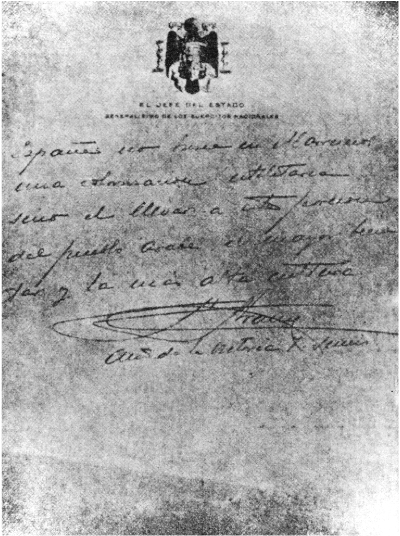 EL JEFE DEL ESTADO
GENERALISIMO DE LOS EJERCITOS NACIONALES
España no busca en Marruecos
una utilitaria
sino el llevar a esta porcion
del pueblo arabe el mayor bienes
tar y la más alta cultura
Franco
Año de la Victoria